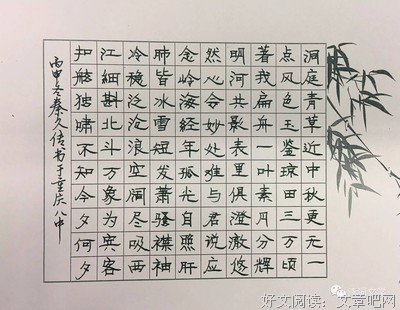 洞庭青草近中秋更无一
点风色玉鉴琼田三万顷
著我扁舟一叶素月分辉
明河共影表里俱澄澈悠
然心会妙处难与君说应
念岭海经年孤光自照肝
肺皆冰雪短发萧骚襟袖
冷稳泛沧浪空阔尽吸西
江细斟北斗万象为宾客
扣舷独啸不知今夕何夕
丙申冬秦久传书于重庆八中
好文阅读：文章吧网